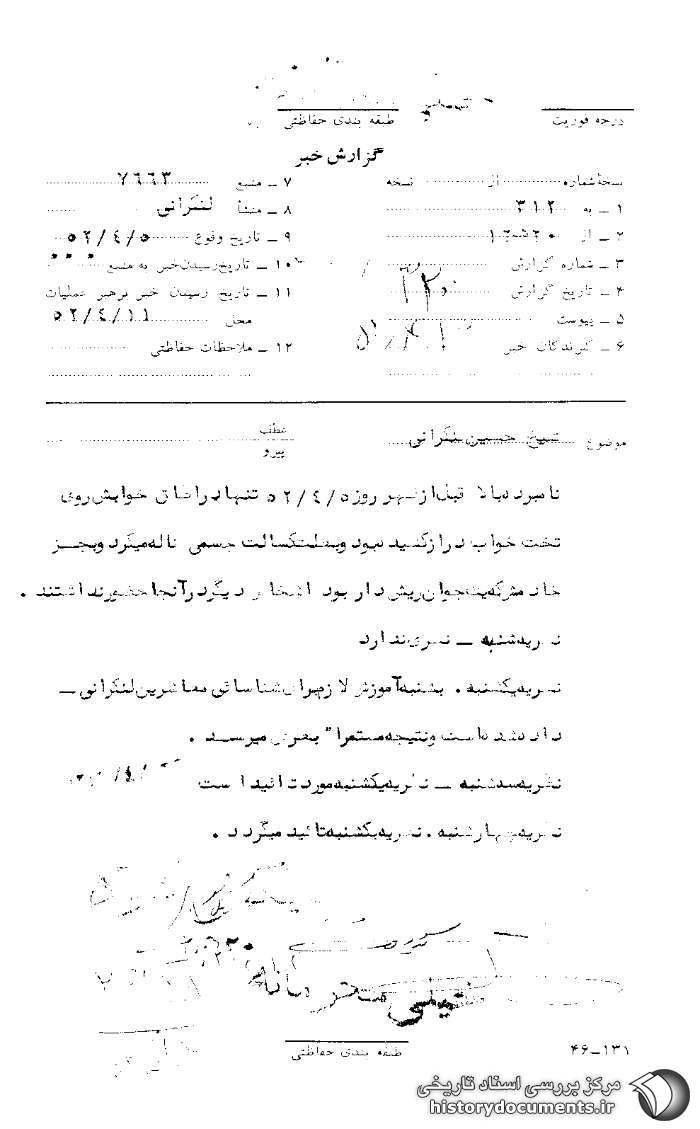 درجه فوریت
طبقه بندی حفاظتی
گزارش خبر
نسخهٔ شماره از نسخه
۱ – به ۳۱۲
۲ – از ۲۰ ه‍ ۱۲
۳ – شماره گزارش
۴ – تاریخ گزارش
۵ – پیوست
۶ – گیرندگان خبر
۷ – منبع ۷۶۶۳
۸ – منشأ لنکرانی
۹ – تاریخ وقوع ۵۲/۴/۵
۱۰ – تاریخ رسیدن خبر به منبع
۱۱ – تاریخ رسیدن خبر برهبر عملیات
محل ۵۲/۴/۱۱
۱۲ – ملاحظات حفاظتی
موضوع شیخ حسین لنکرانی
عطف
پیرو
نامبرده بالا قبل از ظهر روز ۵۲/۴/۵ تنها در اطاق خوابش روی
تخت خواب دراز کشیده بود و بعلت کسالت جسمی ناله میکرد و بجز
خادمش که یک جوان ریش دار بود اشخاص دیگر در آنجا حضور نداشتند .
نظریه شنبه – نظری ندارد
نظریه یکشنبه . بشنبه آموزش لازم برای شناسائی معاشرین لنکرانی –
داده شده است و نتیجه مستمرا" بعرض میرسد .
نظریه سه شنبه – نظریه یکشنبه مورد تائید است
نظریه چهارشنبه . نظریه یکشنبه تائید میگردد .
خیلی محرمانه
طبقه بندی حفاظتی
۴۶–۱۳۱
مرکز بررسی اسناد تاریخی
historydocuments.ir